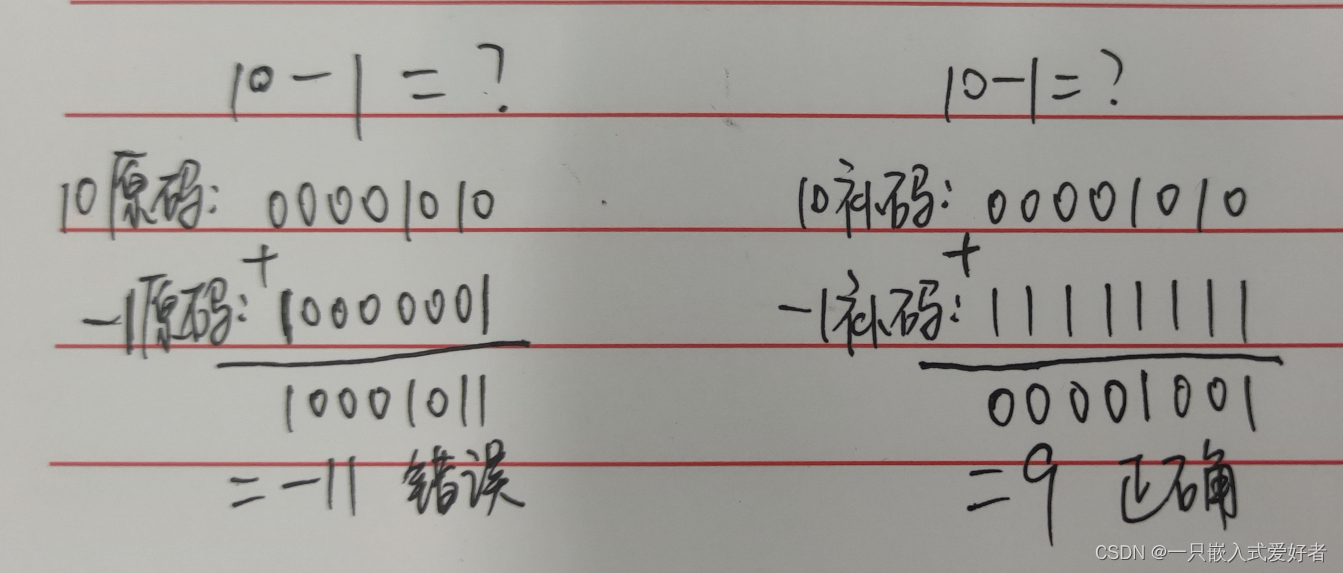 10-1=?
10原码: 00001010
+
-1原码: 10000001
10001011
=-11 错误
10-1=?
10补码: 00001010
+
-1补码: 11111111
00001001
=9 正确
CSDN @一只嵌入式爱好者